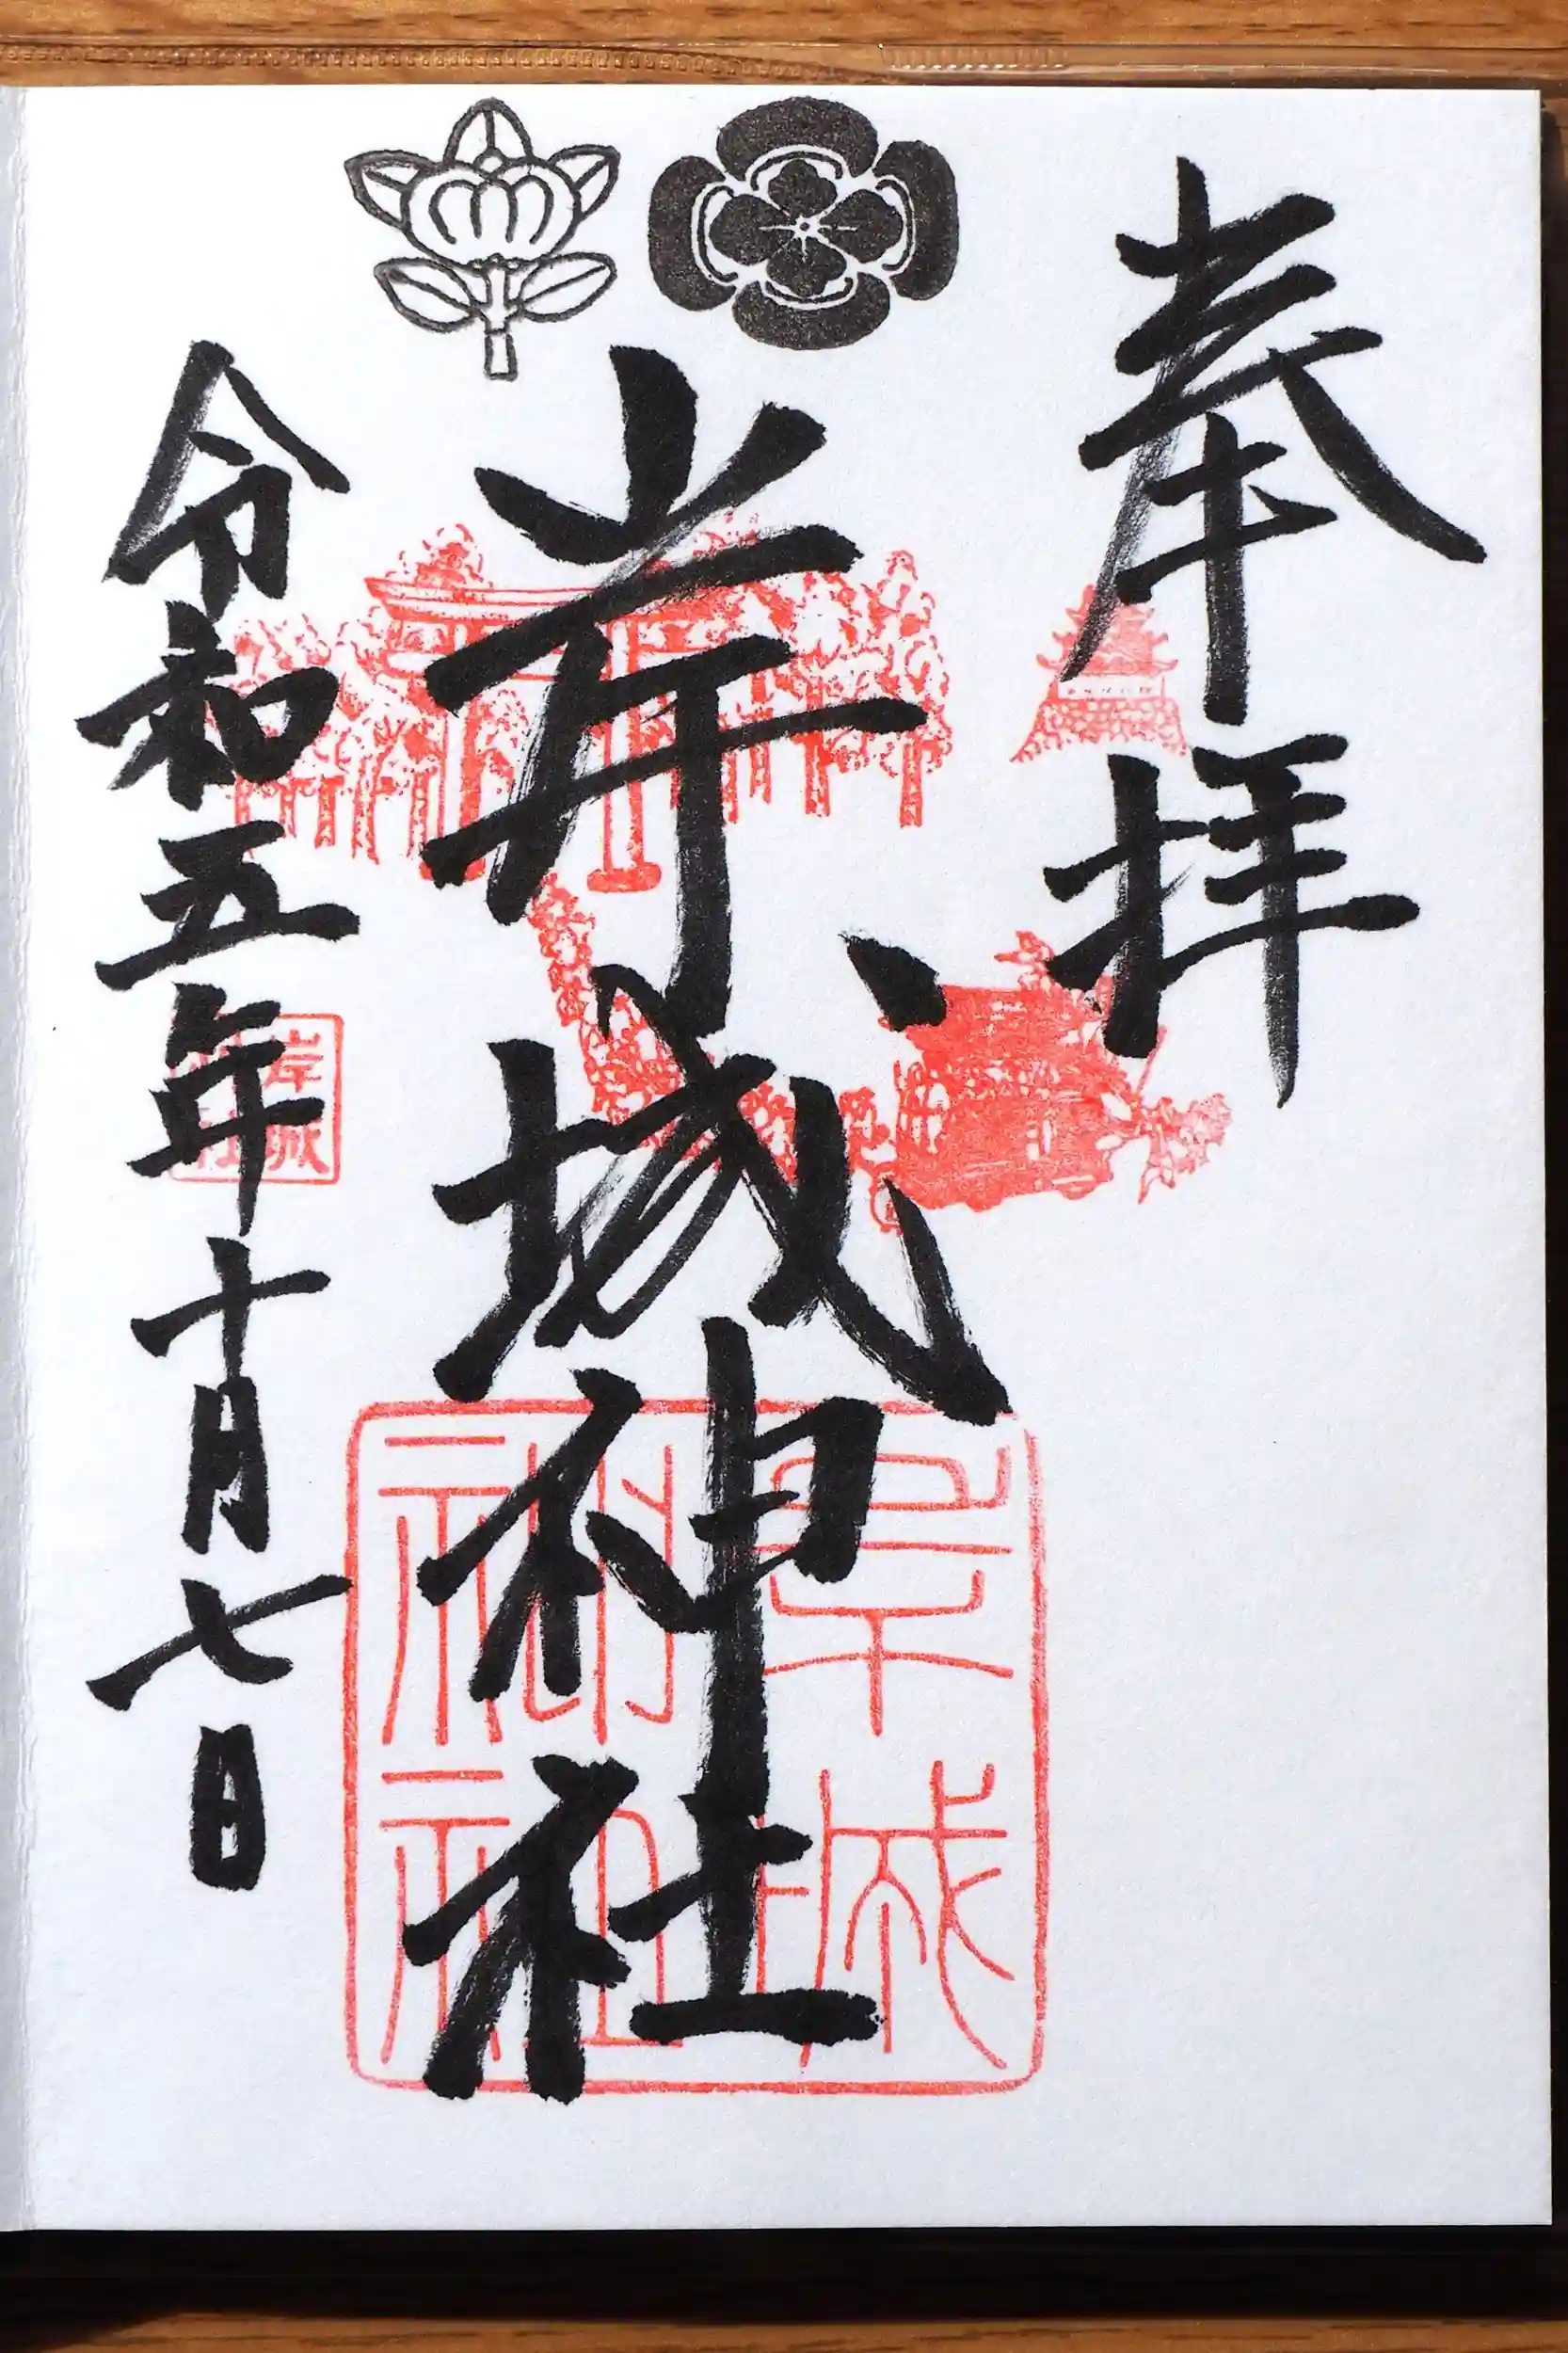 奉拝
岸城神社
令和五年十月七日
岸城神社